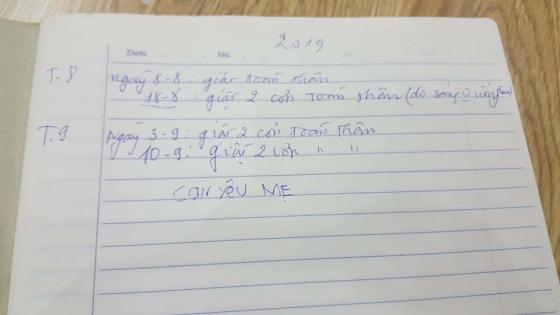 2019
Date No.
T.8 Ngày 8-8: giật toàn thân
18-8: giật 2 cơn toàn thân (do sáng 0 uống
T.9 Ngày 3-9: giật 2 cơn toàn thân
10-9: giật 2 cơn " "
CON YÊU MẸ